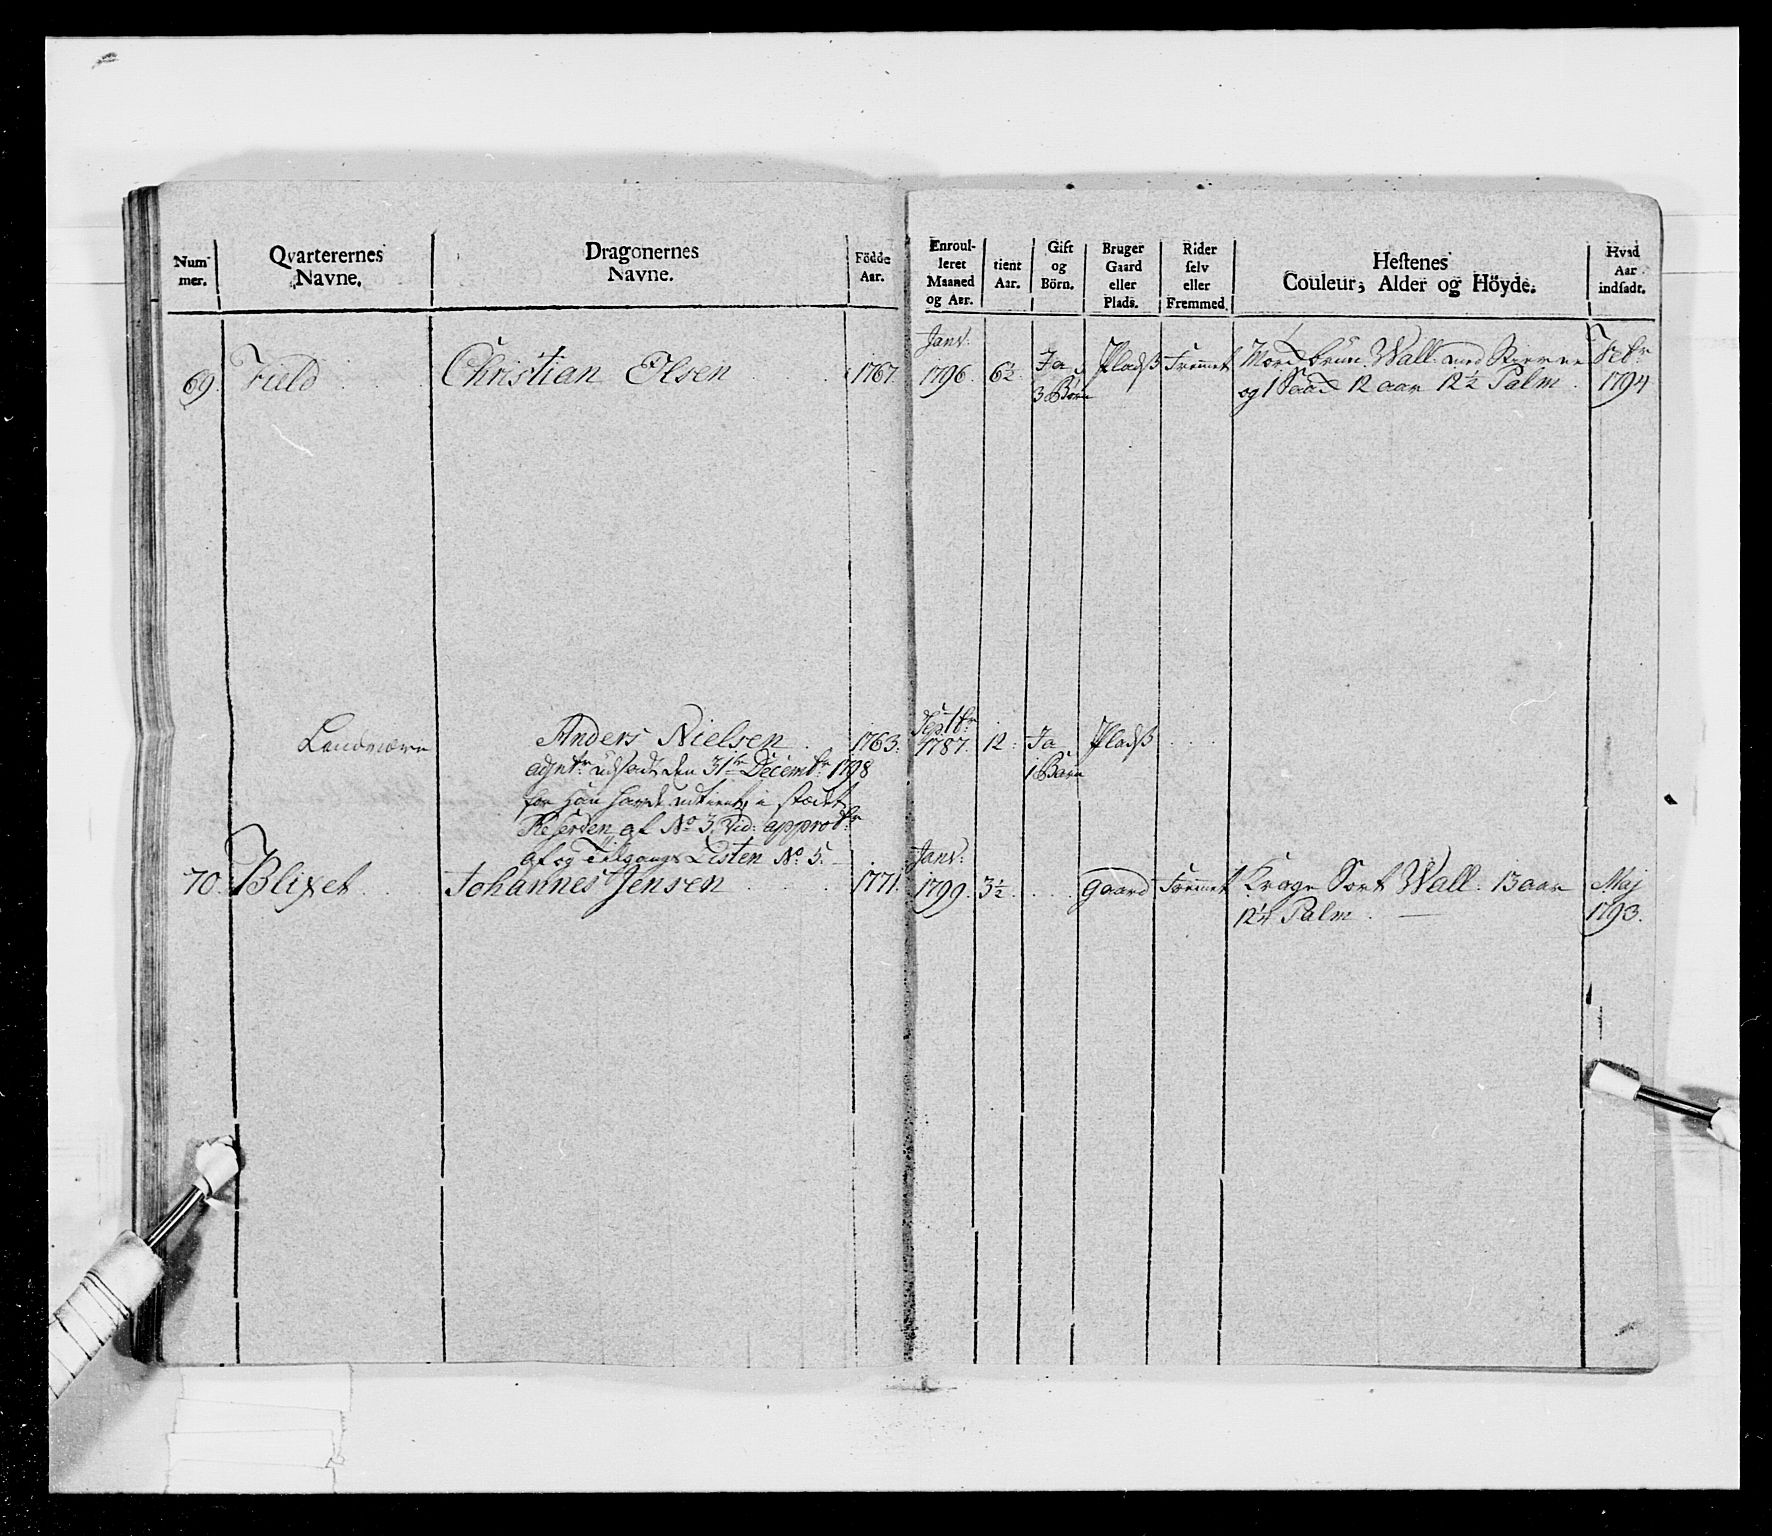 Num-
mer.
Qvarterernes
Navne.
Dragonernes
Navne.
Födde
Aar.
Enroul-
leret
Maaned
og Aar.
tient
Aar.
Gift
og
Börn.
Bruger
Gaard
eller
Plads.
Rider
selv
eller
Fremmed.
Hestenes
Couleur, Alder og Höyde.
Hvad
Aar
indsadt.
69. Field
Christian Olsen
1767.
Janv:
1796.
6½
Ja
3 Börn
Pladß
Fremmet
Mord brun Wall. med Stierne
og 1 12 aar 12½ Palm.
Febr
1794
Landværn
Anders Nielsen
1763.
Septbr
1787.
12.
Ja
1 Barn
Pladß
udsadt den 31te Decembr: 1798
for han havde udtient, i stædet
af No 3. Vid: approb
af og Tilgangs Listen No 5.
70. Blixet
Johannes Jensen
1771.
Janv:
1799.
3½
gaard
Fremmet
Sort Wall. 13 aar
12¼ Palm.
Maj
1793.